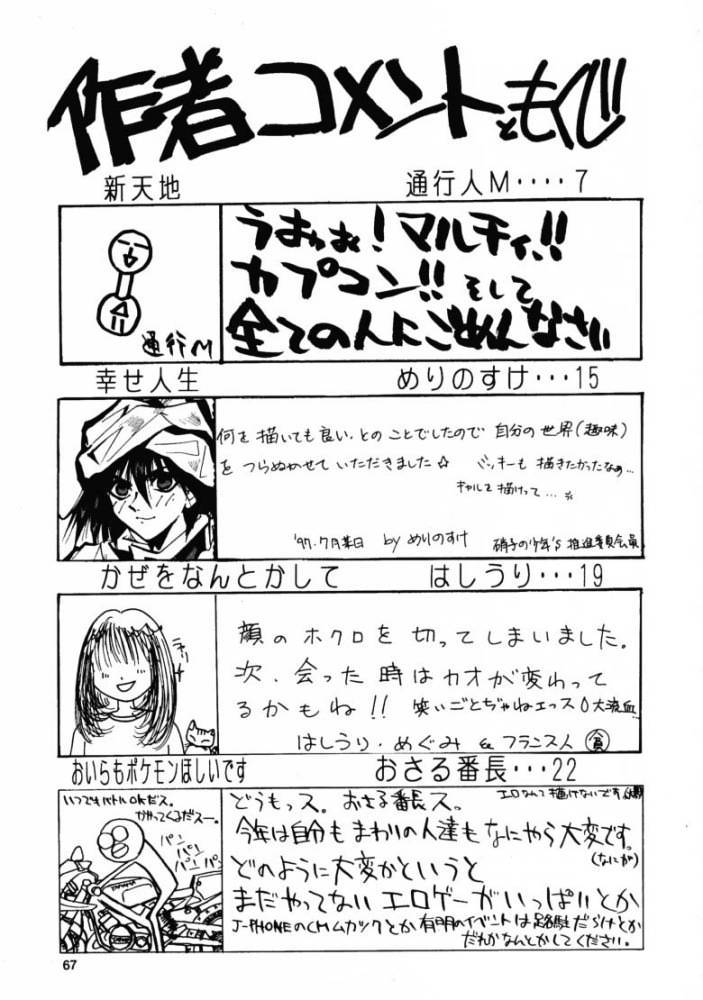 作者コメントともくじ
新天地 通行人M････7
うおぉぉ!マルチィ!!
カプコン!!そして
全ての人にごめんなさい
通行M
幸せ人生 めりのすけ･･･15
何を描いても良い、とのことでしたので 自分の世界(趣味)
をつらぬかせていただきました☆ バッキーも描きたかったなぁ…
ギャルを描けって…
'97.7月某日 by めりのすけ 硝子の少年's 推進委員会員
かぜをなんとかして はしうり･･･19
顔のホクロを切ってしまいました。
次、会った時はカオが変わって
るかもね!! 笑いごとぢゃねエっス 大流血
はしうり・めぐみ & フランス人 貧
チリッ
おいらもポケモンほしいです おさる番長･･･22
いつでもバトルOKだス。
かかってくるだスー。
パン
パパ
パパパパ
どうもっス。おさる番長ス。 エロなんて描けないです
今年は自分もまわりの人達もなにやら大変です。
(なにが)
どのように大変かというと
まだやってないエロゲーがいっぱいとか
J-PHONEのCMムカツクとか 有明のイベントは路駐だらけとか
だれかなんとかしてください。
67